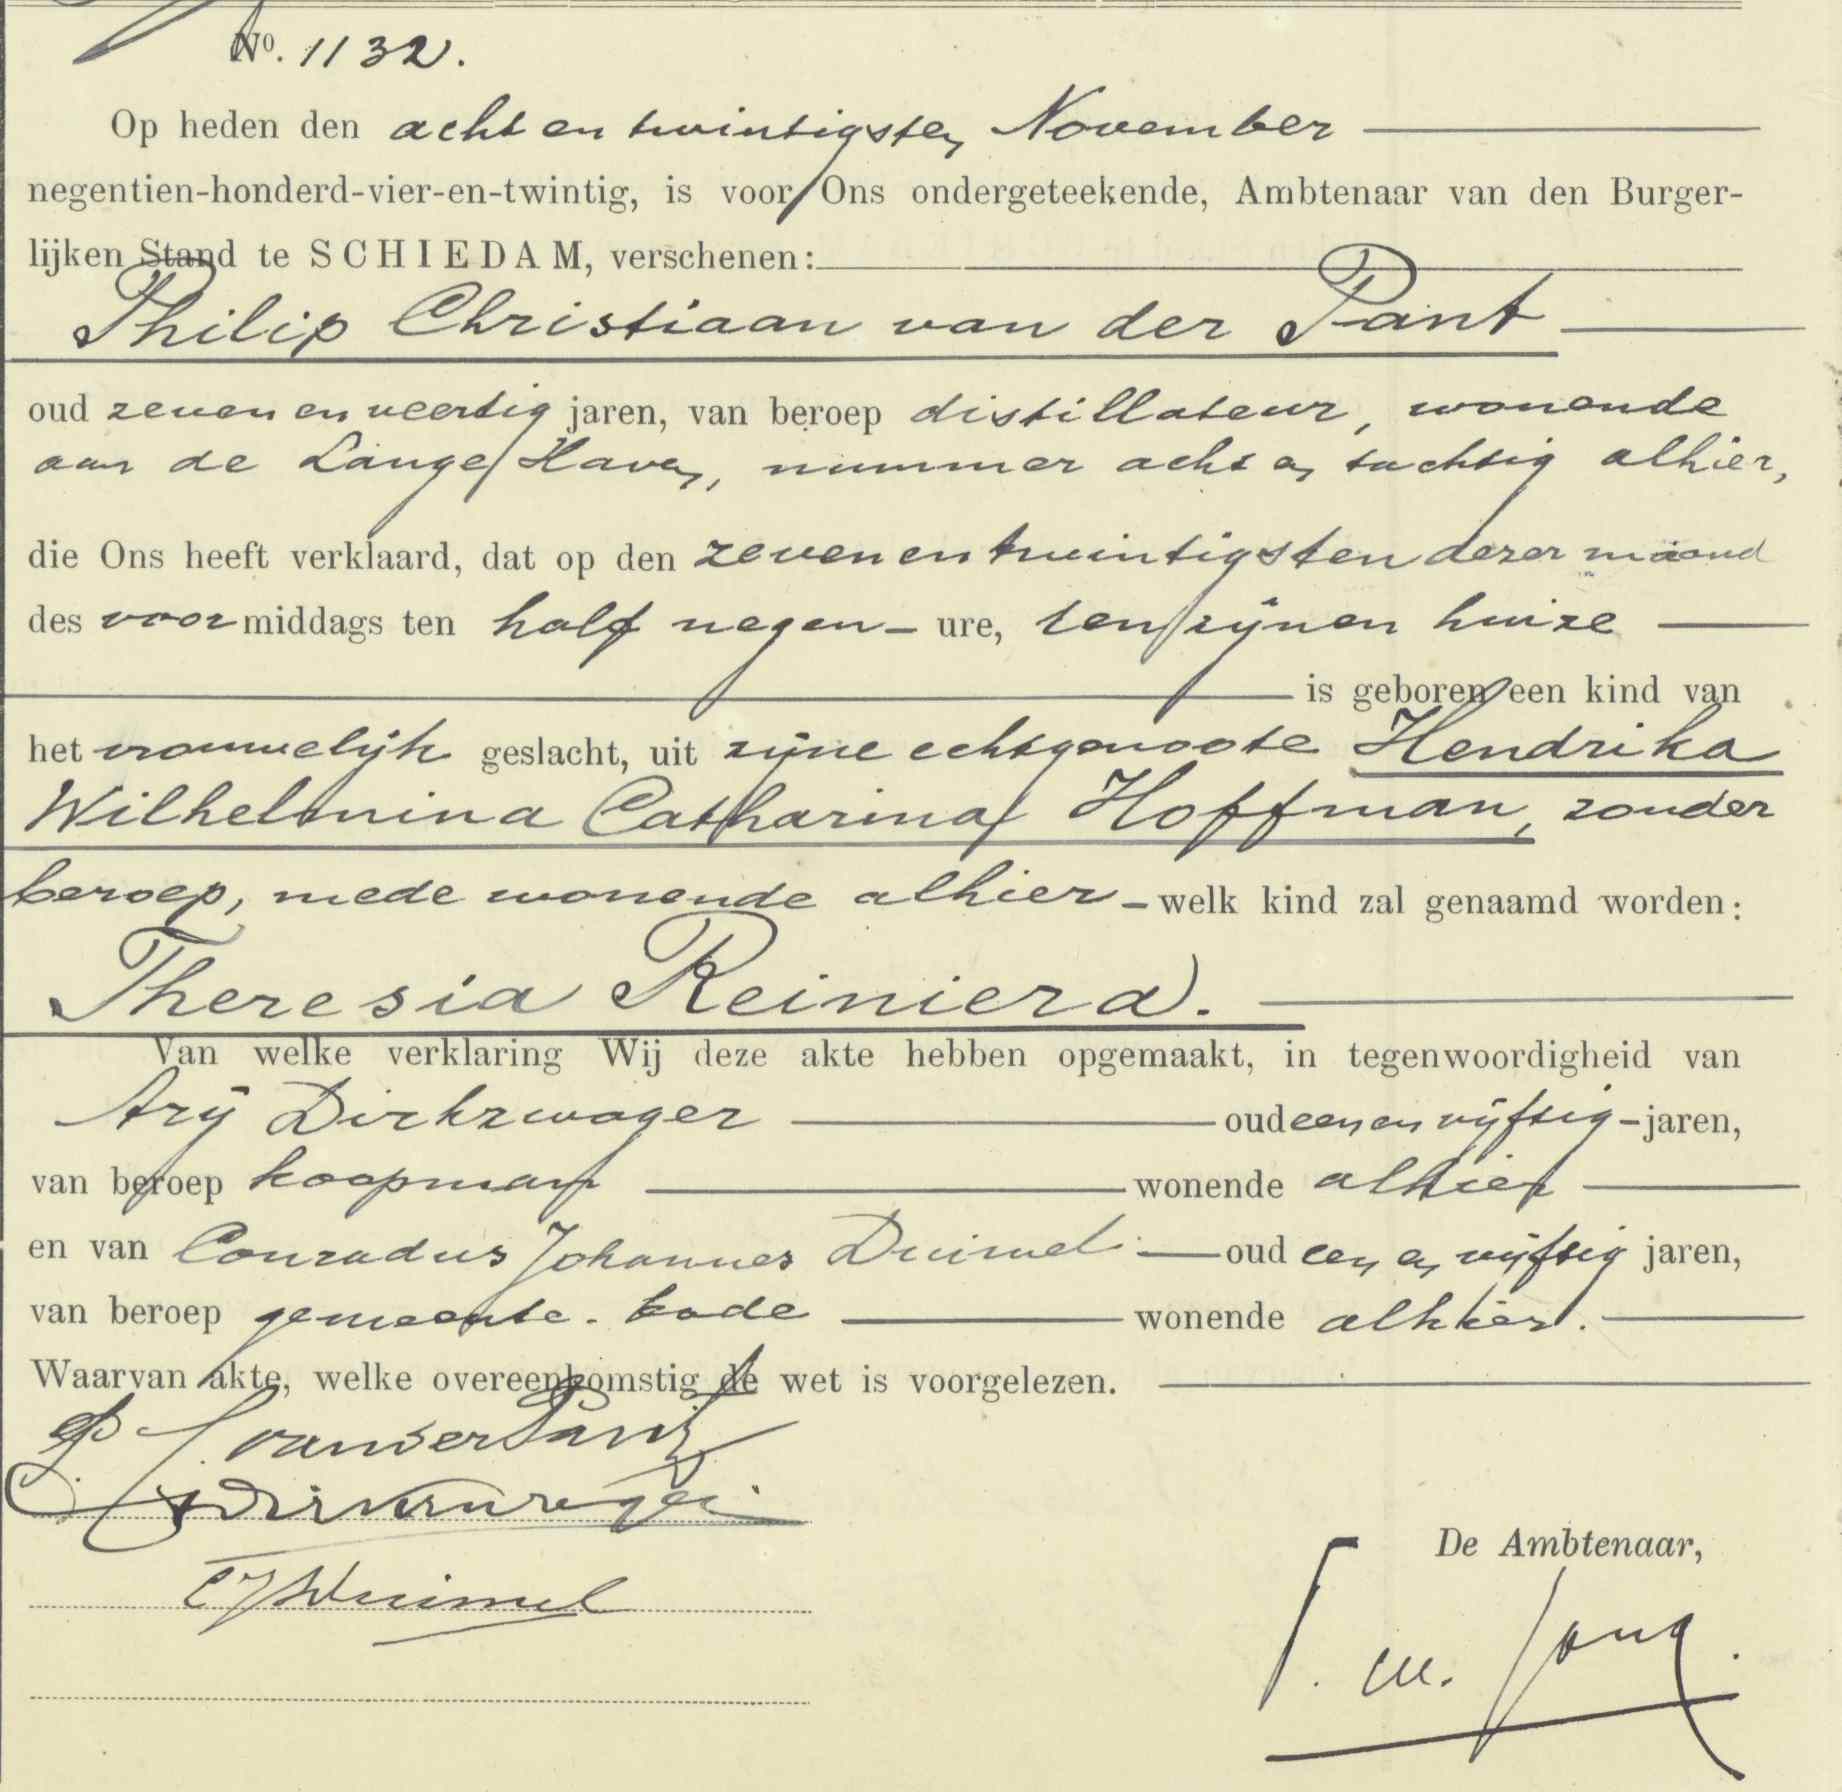 No. 1132.
Op heden den acht en twintigsten November
negentien-honderd-vier-en-twintig, is voor Ons ondergeteekende, Ambtenaar van den Burger-
lijken Stand te SCHIEDAM, verschenen:
Philip Christiaan van der Pant
oud zeven en veertig jaren, van beroep distillateur, wonende
aan de Lange Haven, nummer acht en tachtig alhier,
die Ons heeft verklaard, dat op den zeven en twintigsten dezer maand
des voormiddags ten half negen ure, ten zijnen huize
is geboren een kind van
het vrouwelijk geslacht, uit zijne echtgenoote Hendrika
Wilhelmina Catharina Hoffman, zonder
beroep, mede wonende alhier - welk kind zal genaamd worden:
Theresia Reiniera.
Van welke verklaring Wij deze akte hebben opgemaakt, in tegenwoordigheid van
Arij Dirkzwager oud een en vijftig - jaren,
van beroep koopman wonende alhier
en van Conradus Johannes Duimel oud een en vijftig jaren,
van beroep gemeente-bode wonende alhier.
Waarvan akte, welke overeenkomstig de wet is voorgelezen.
P. C. van der Pant
A Dirkzwager
CJ Duimel
De Ambtenaar,